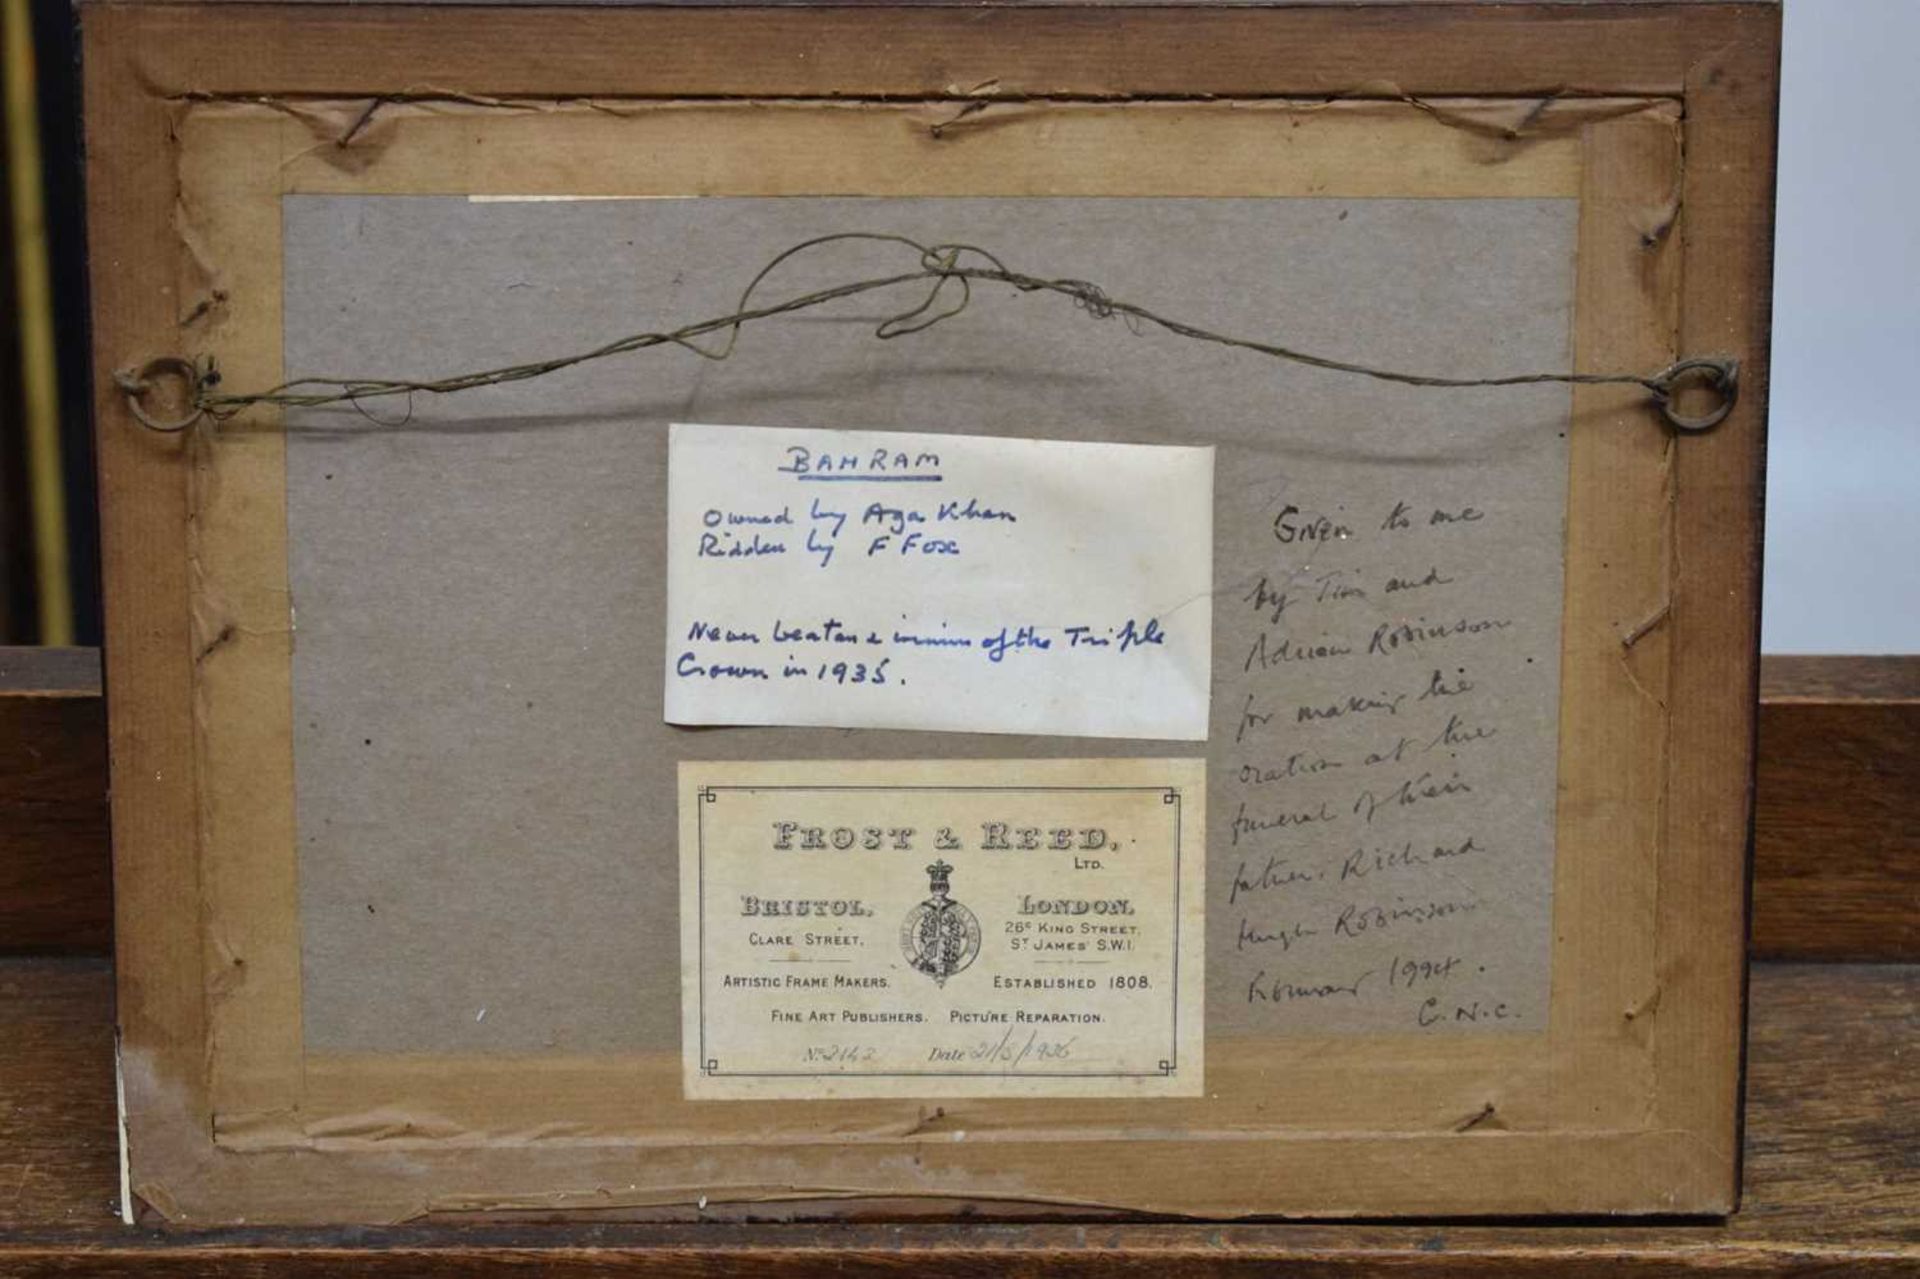 BAHRAM
Owned by Aga Khan
Ridden by F Fox
Never beaten & winner of the Triple
Crown in 1935.
FROST & REED,
LTD.
BRISTOL,
CLARE STREET,
LONDON,
26c KING STREET,
ST JAMES' S.W.1.
ARTISTIC FRAME MAKERS.
ESTABLISHED 1808.
FINE ART PUBLISHERS. PICTURE REPARATION.
No. Date 21/5/1936
Given to me
by Tim and
Adrian Robinson
for making the
oration at the
funeral of their
father, Richard
Hugh Robinson
1994.
C.N.C.